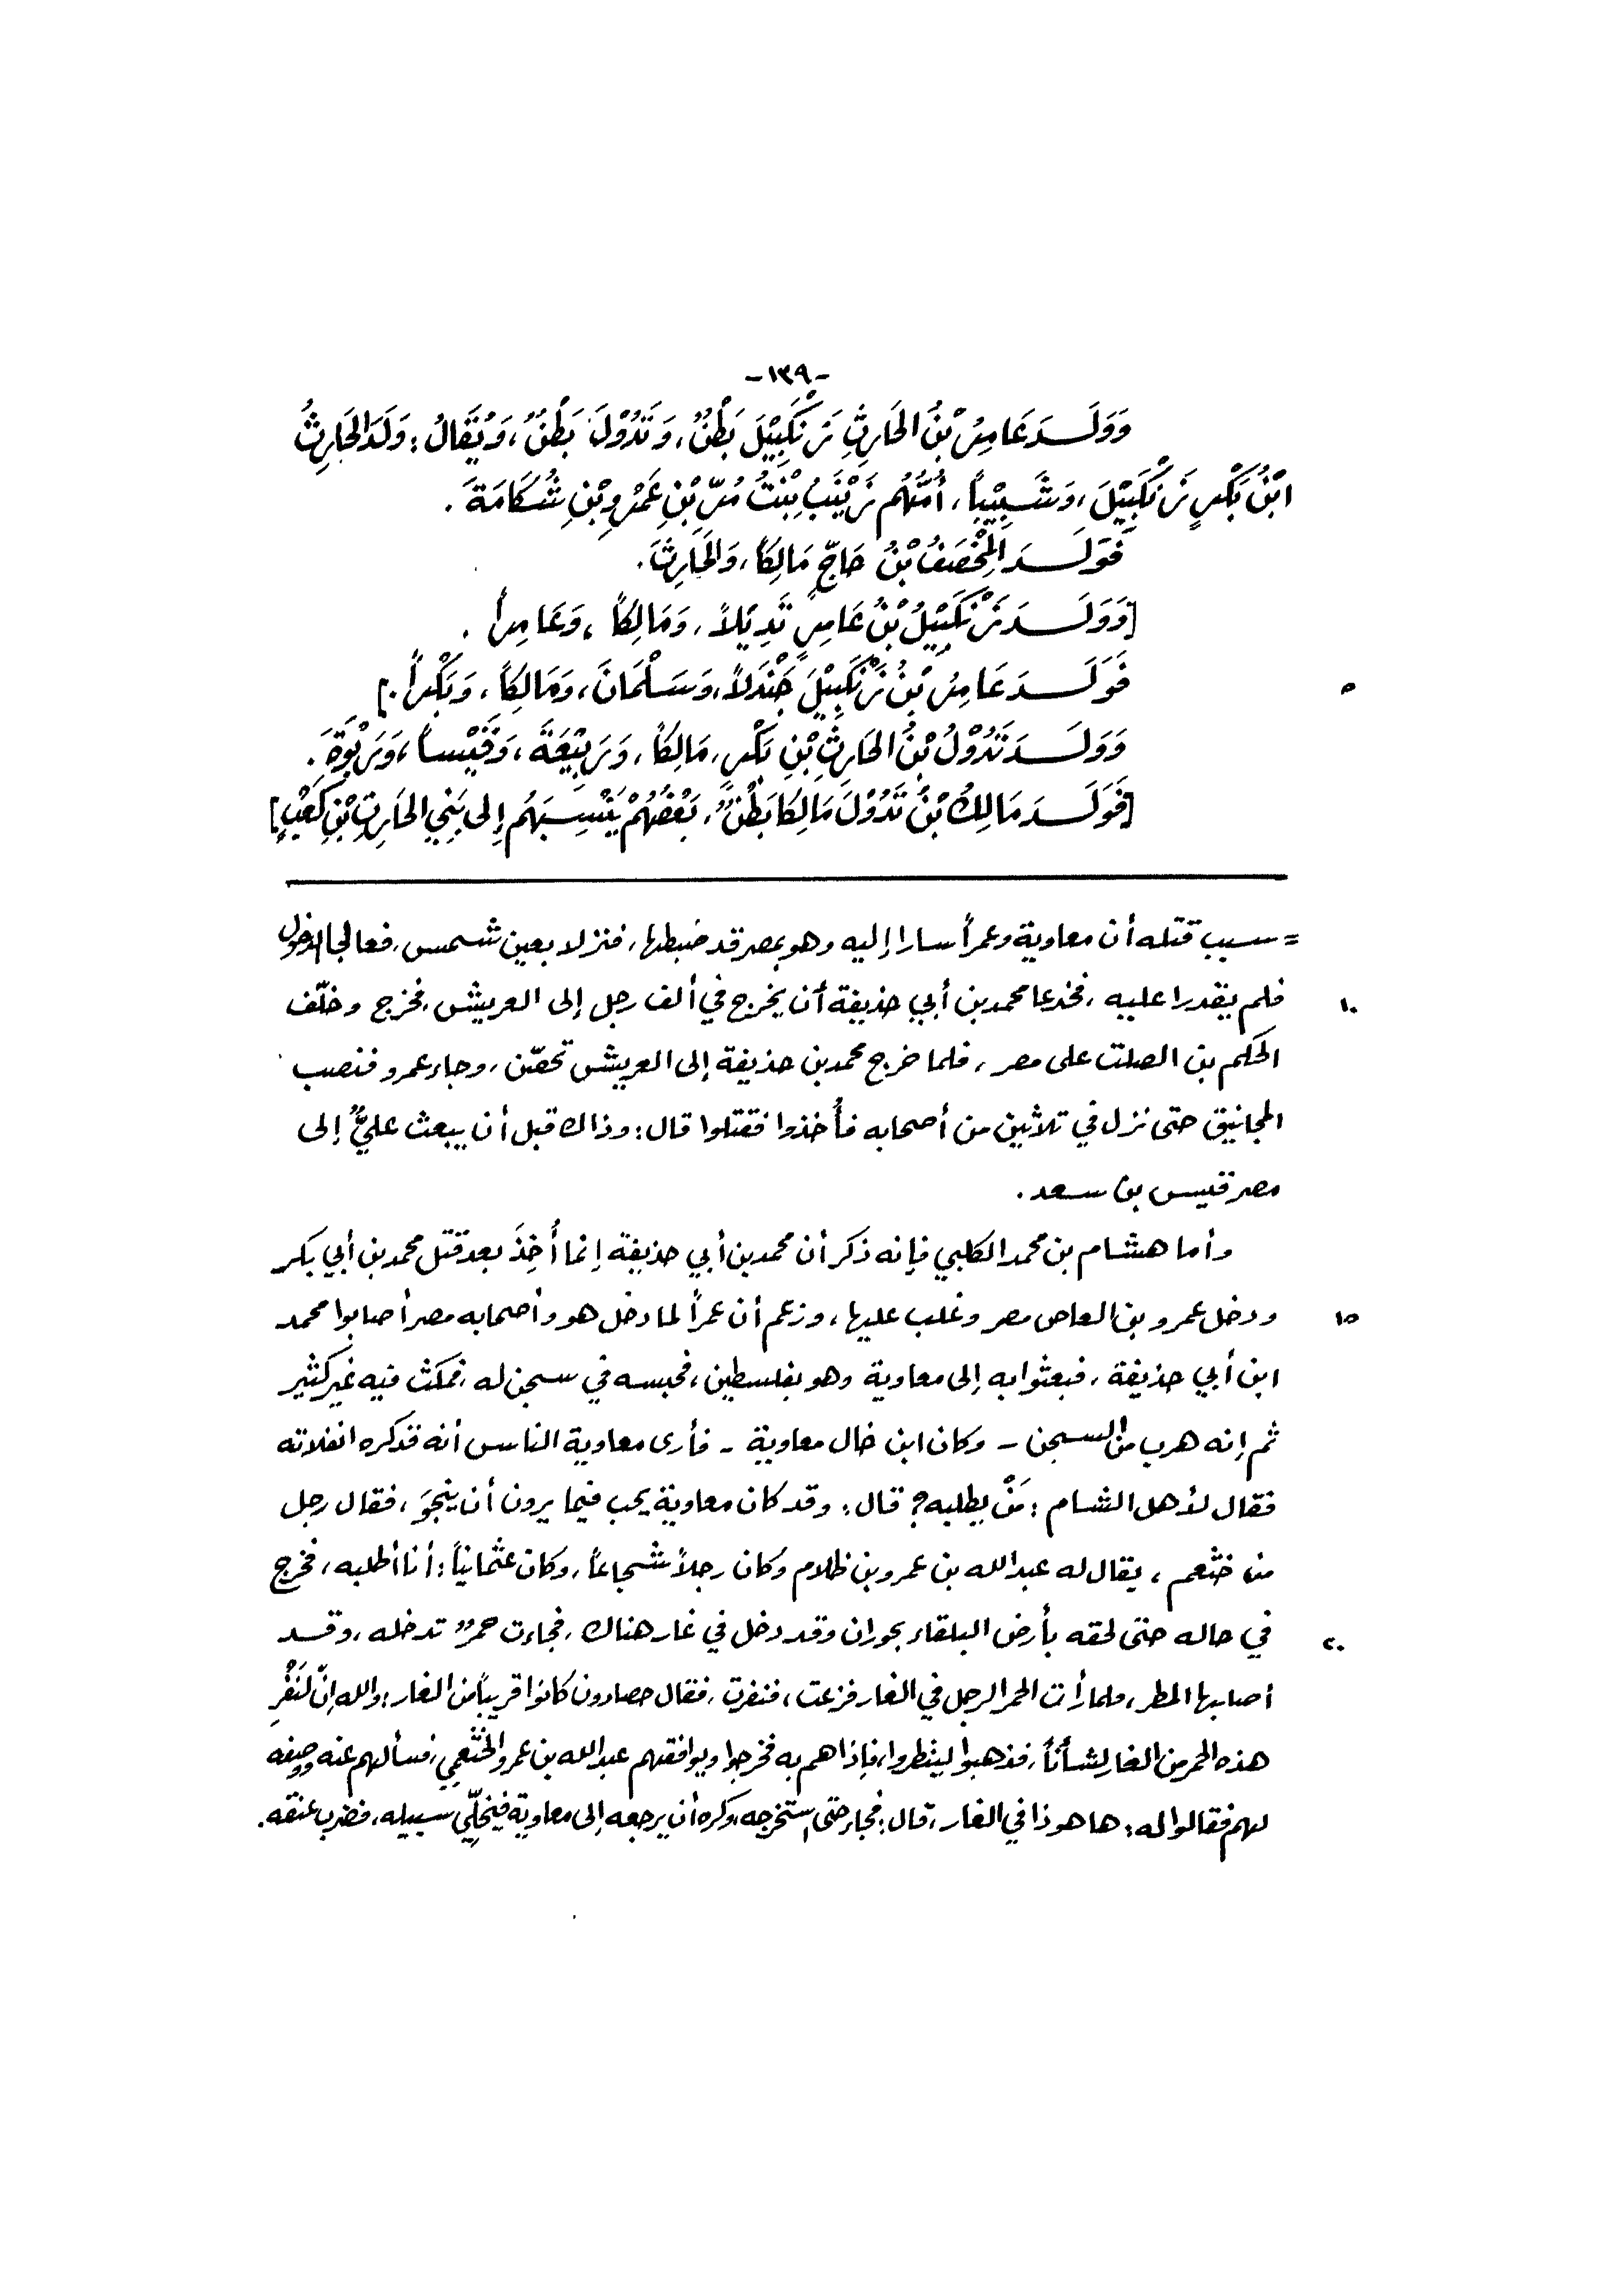 -١٣٩-
وَوَلَـدَ عَامِرُ بْنُ الحَارِثِ زَنْكَبِيْلَ بَطْنٌ، وَتَدُوْلَ بَطْنٌ، وَيُقَالُ: وَلَدَ الحَارِثُ
ابْنُ بَكْرٍ زَنْكَبِيْلَ، وَشَبِيْباً، أُمُّهُم زَيْنَبُ بِنْتُ مُرِّ بْنِ عَمْرِو بْنِ شُكَامَةَ.
فَوَلَـدَ المِخْصَفُ بْنُ حَاجٍّ مَالِكاً، وَالحَارِثَ.
[وَوَلَـدَ زَنْكَبِيْلُ بْنُ عَامِرٍ تَدِيْلاً، وَمَالِكاً، وَعَامِراً.
فَوَلَـدَ عَامِرُ بْنُ زَنْكَبِيْلَ جَنْدَلاً، وَسَلْمَانَ، وَمَالِكاً، وَبَكْراً.]
٥
وَوَلَـدَ تَدُوْلُ بْنُ الحَارِثِ بْنِ بَكْرٍ، مَالِكاً، وَرَبِيْعَةَ، وَقَيْساً، وَرَبْوَةَ.
[فَوَلَـدَ مَالِكُ بْنُ تَدُوْلَ مَالِكاً بَطْنٌ، بَعْضُهُمْ يَنْسِبَهُم إِلى بَنِي الحَارِثِ بْنِ كَعْبٍ]
= سبب قتله أن معاوية وعمراً سارا إليه وهو بمصر قد ضبطها، فنزلا بعين شمس، فعالجا الدخول
فلم يقدرا عليه، فخدعا محمد بن أبي حذيفة أن يخرج في ألف رجل إلى العريش، فخرج وخلّف
١٠
الحكم بن الصلت على مصر، فلما خرج محمد بن حذيفة إلى العريش تحصّن، وجاء عمرو فنصب
المجانيق حتى نزل في ثلاثين من أصحابه فأُخذوا فقتلوا قال: وذاك قبل أن يبعث عليٌّ إلى
مصر قيس بن سعد.
وأما هشام بن محمد الكلبي فإنه ذكر أن محمد بن أبي حذيفة إنما أُخِذَ بعد قتل محمد بن أبي بكر
ودخل عمرو بن العاص مصر وغلب عليها، وزعم أن عمراً لما دخل هو وأصحابه مصر أصابوا محمد
١٥
ابن أبي حذيفة، فبعثوا به إلى معاوية وهو بفلسطين، فحبسه في سجن له، فمكث فيه غير كثير
ثم إنه هرب من السجن - وكان ابن خال معاوية - فأرى معاوية الناس أنه قد كره انفلاته
فقال لأهل الشام: مَنْ يطلبه؟ قال: وقد كان معاوية يحب فيما يرون أن ينجوَ، فقال رجل
من خثعم، يقال له عبد الله بن عمرو بن ظلام وكان رجلاً شجاعاً، وكان عثمانياً: أنا أطلبه، فخرج
في حاله حتى لحقه بأرض البلقاء بحوران وقد دخل في غار هناك، فجاءت حمرٌ تدخله، وقـد
٢٠
أصابها المطر، فلما رأت الحمر الرجل في الغار فزعت، فنفرت، فقال حصادون كانوا قريباً من الغار: والله إنّ لنَفْرِ
هذه الحمر من الغار لشأناً، فذهبوا لينظروا، فإذا هم به فخرجوا ويوافقهم عبد الله بن عمرو الخثعمي، فسألهم عنه ووصفه
لهم فقالوا له: ها هوذا في الغار، قال: فجاء حتى استخرجه، وكره أن يرجعه إلى معاوية فيخلّي سبيله، فضرب عنقه.